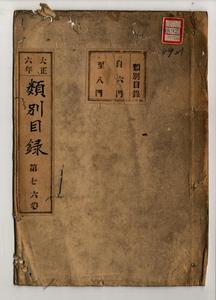 大正
六年
類別目録
第七六巻
類別目録
自六門
至八門